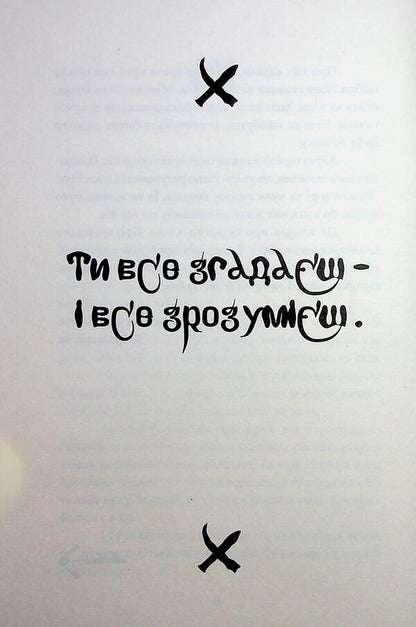 Ти все згадаєш –
і все зрозумієш.